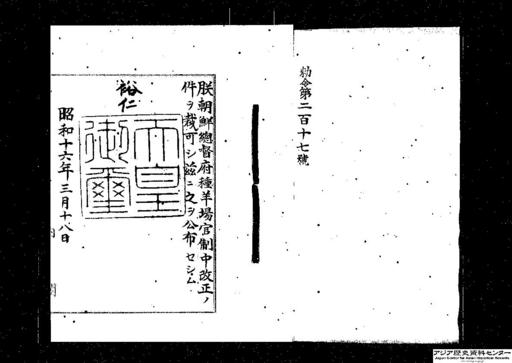 勅令第二百十七號
朕朝鮮總督府種羊場官制中改正ノ
件ヲ裁可シ茲ニ之ヲ公布セシム
裕仁
天皇
御璽
昭和十六年三月十八日
アジア歴史資料センター
Japan Center for Asian Historical Records